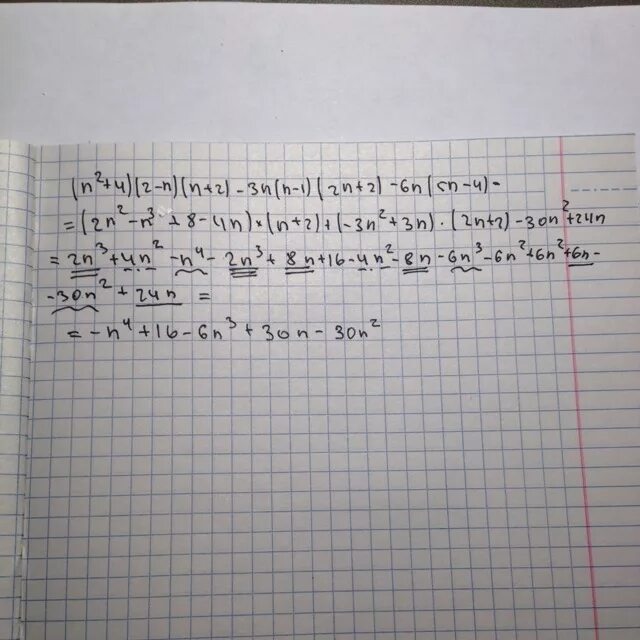 (n²+4)(2-n)(n+2)-3n(n-1)(2n+2)-6n(5n-4)=
=(2n²-n³+8-4n)·(n+2)+(-3n²+3n)·(2n+2)-30n²+24n
=2n³+4n²-n⁴-2n³+8n+16-4n²-8n-6n³-6n²+6n²+6n-
-30n²+24n=
=-n⁴+16-6n³+30n-30n²